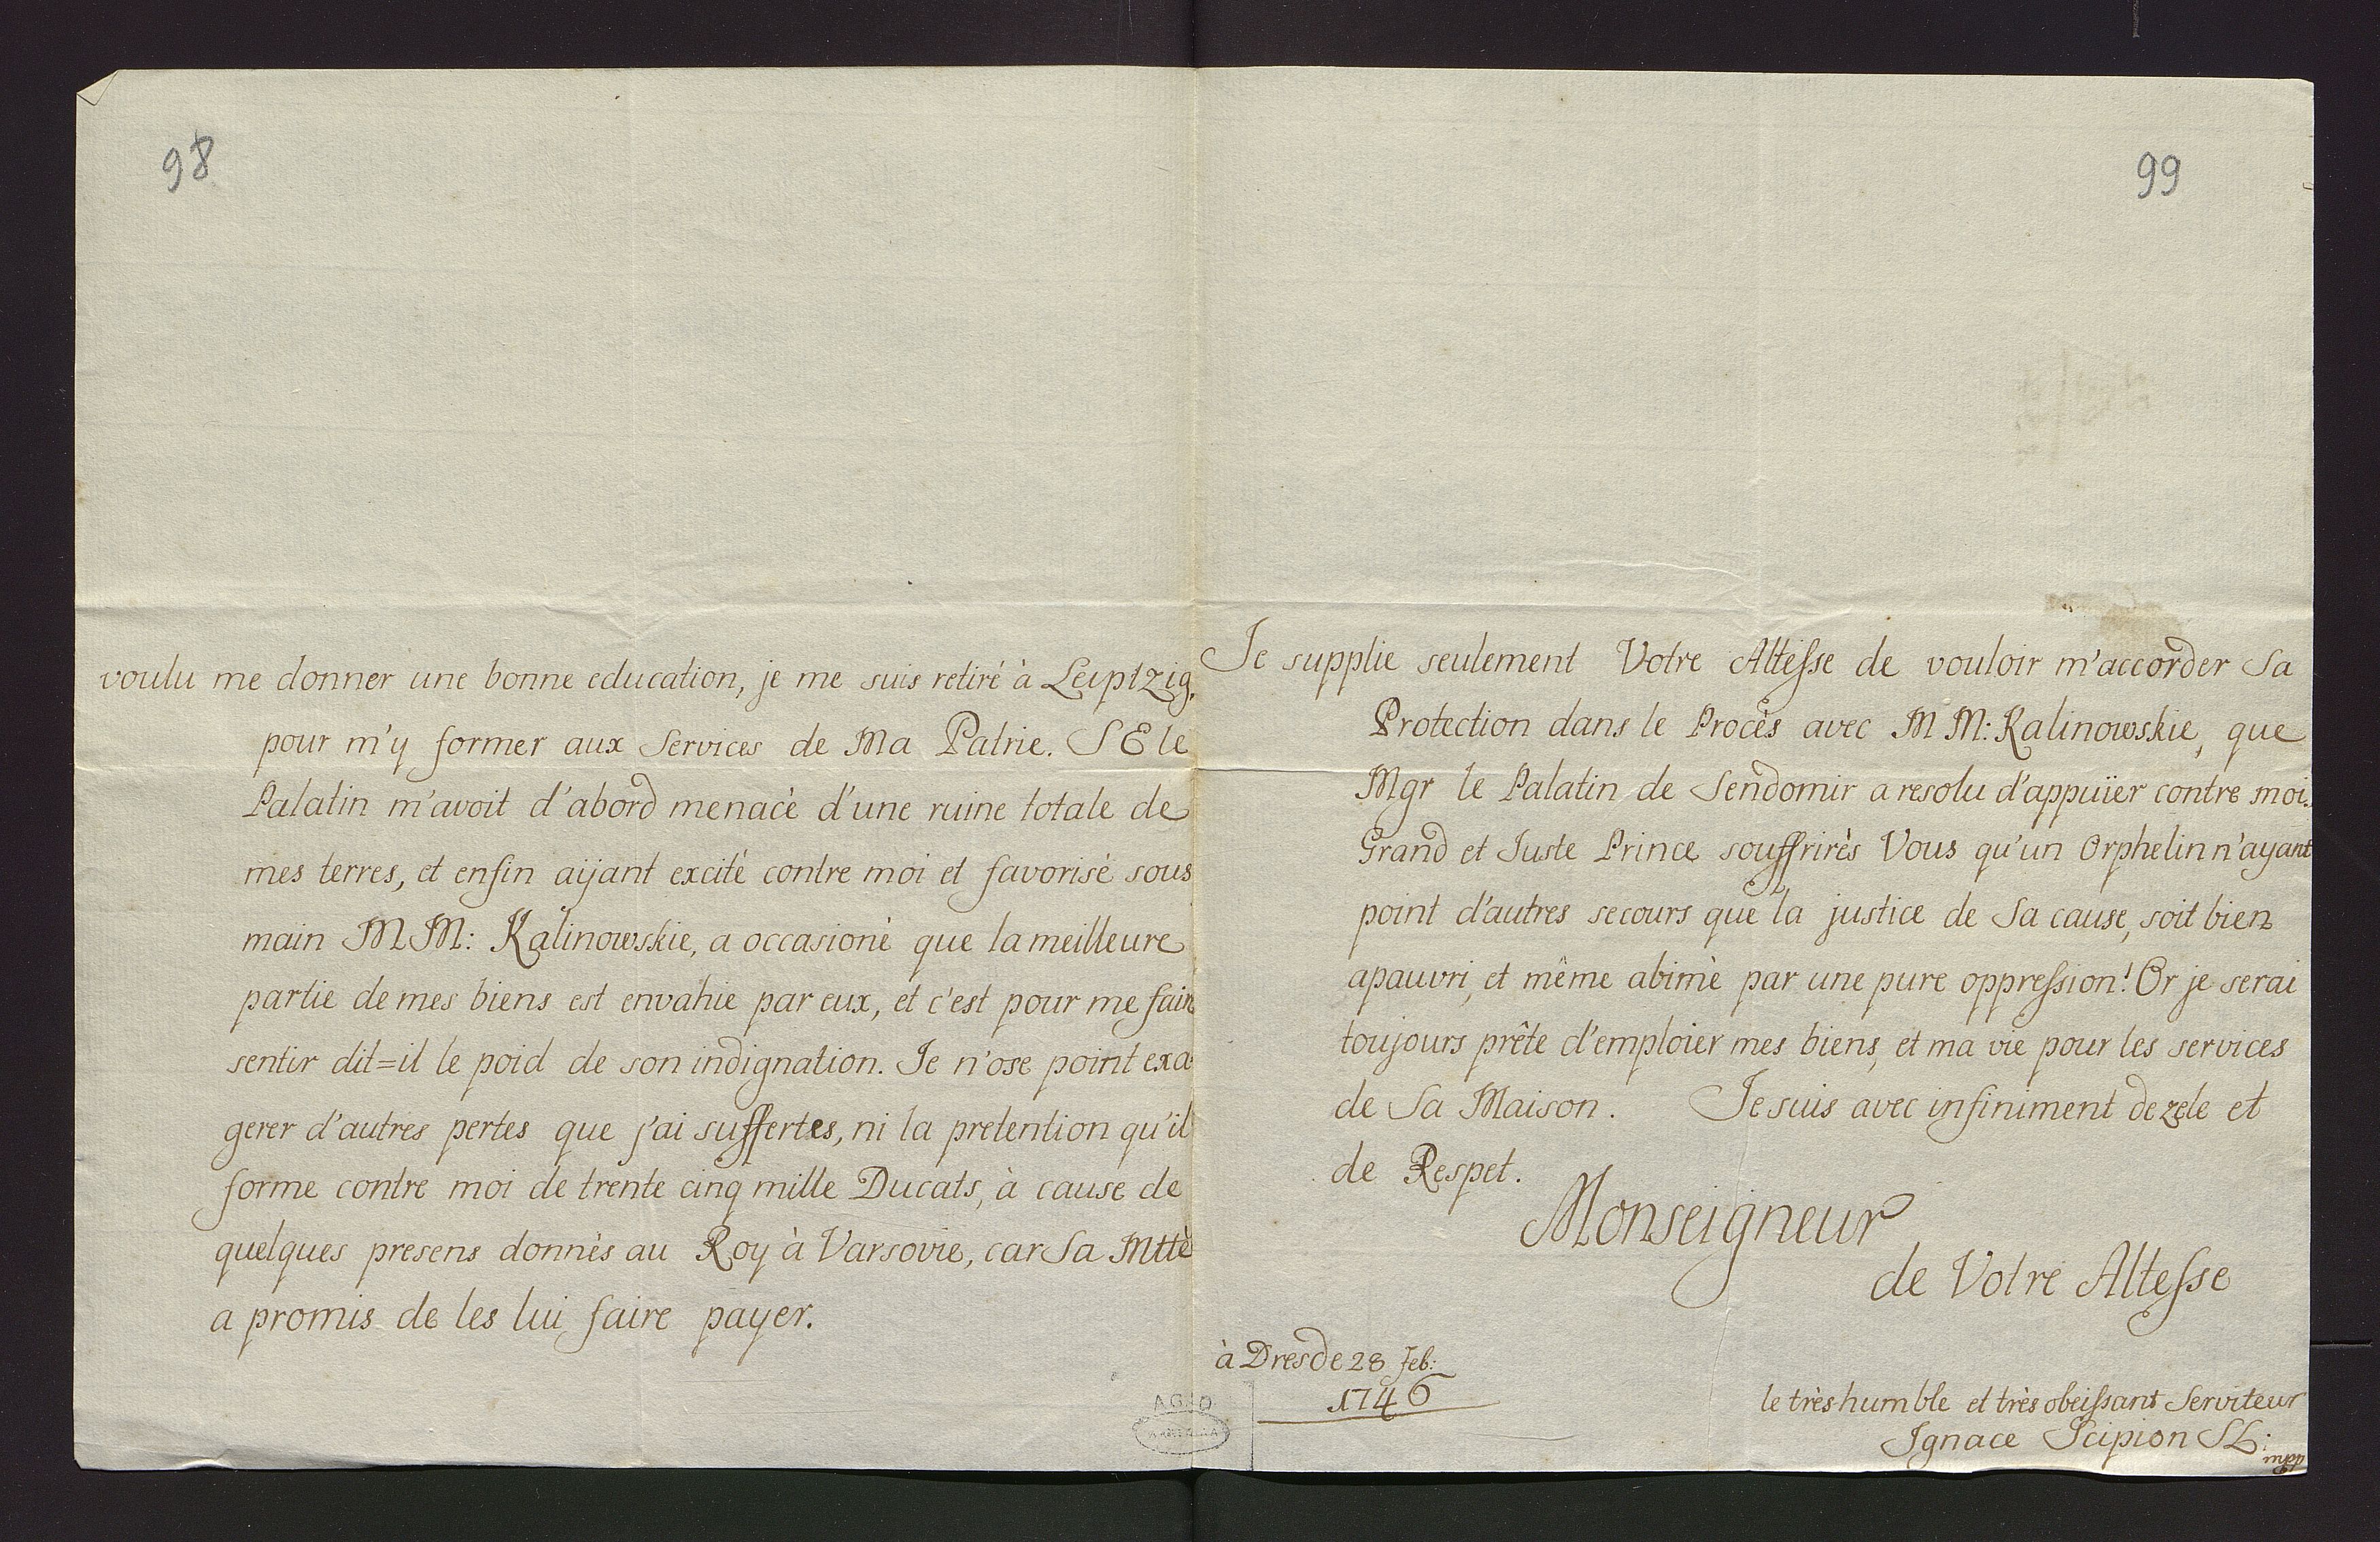 98
voulu me donner une bonne education, je me suis retiré à Leiptzig,
pour m'y former aux Services de Ma Patrie. S E le
Palatin m'avoit d'abord menacè d'une ruine totale de
mes terres, et enfin aijant excité contre moi et favorisé sous
main M M: Kalinowskie, a occasioné que la meilleure
partie de mes biens est envahie par eux, et c'est pour me faire
sentir dit=il le poid de son indignation. Je n'ose point exa-
gerer d'autres pertes que j'ai suffertes, ni la pretention qu'il
forme contre moi de trente cinq mille Ducats, à cause de
quelques presens donnés au Roy à Varsovie, car Sa Mttè
a promis de les lui faire payer.
99
Je supplie seulement Votre Altesse de vouloir m'accorder Sa
Protection dans le Procès avec M M: Kalinowskie, que
Mgr le Palatin de Sendomir a resolu d'appuïer contre moi.
Grand et Juste Prince souffrirès Vous qu'un Orphelin n'ayant
point d'autres secours que la justice de Sa cause, soit bien
apauvri, et même abimè par une pure oppression! Or je serai
toujours prête d'emploier mes biens, et ma vie pour les services
de Sa Maison. Je suis avec infiniment de zele et
de Respet.
Monseigneur
de Votre Altesse
à Dresde 28 Feb:
1746
le très humble et très obeissant Serviteur
Ignace Scipion SL:
mpp
AGAD